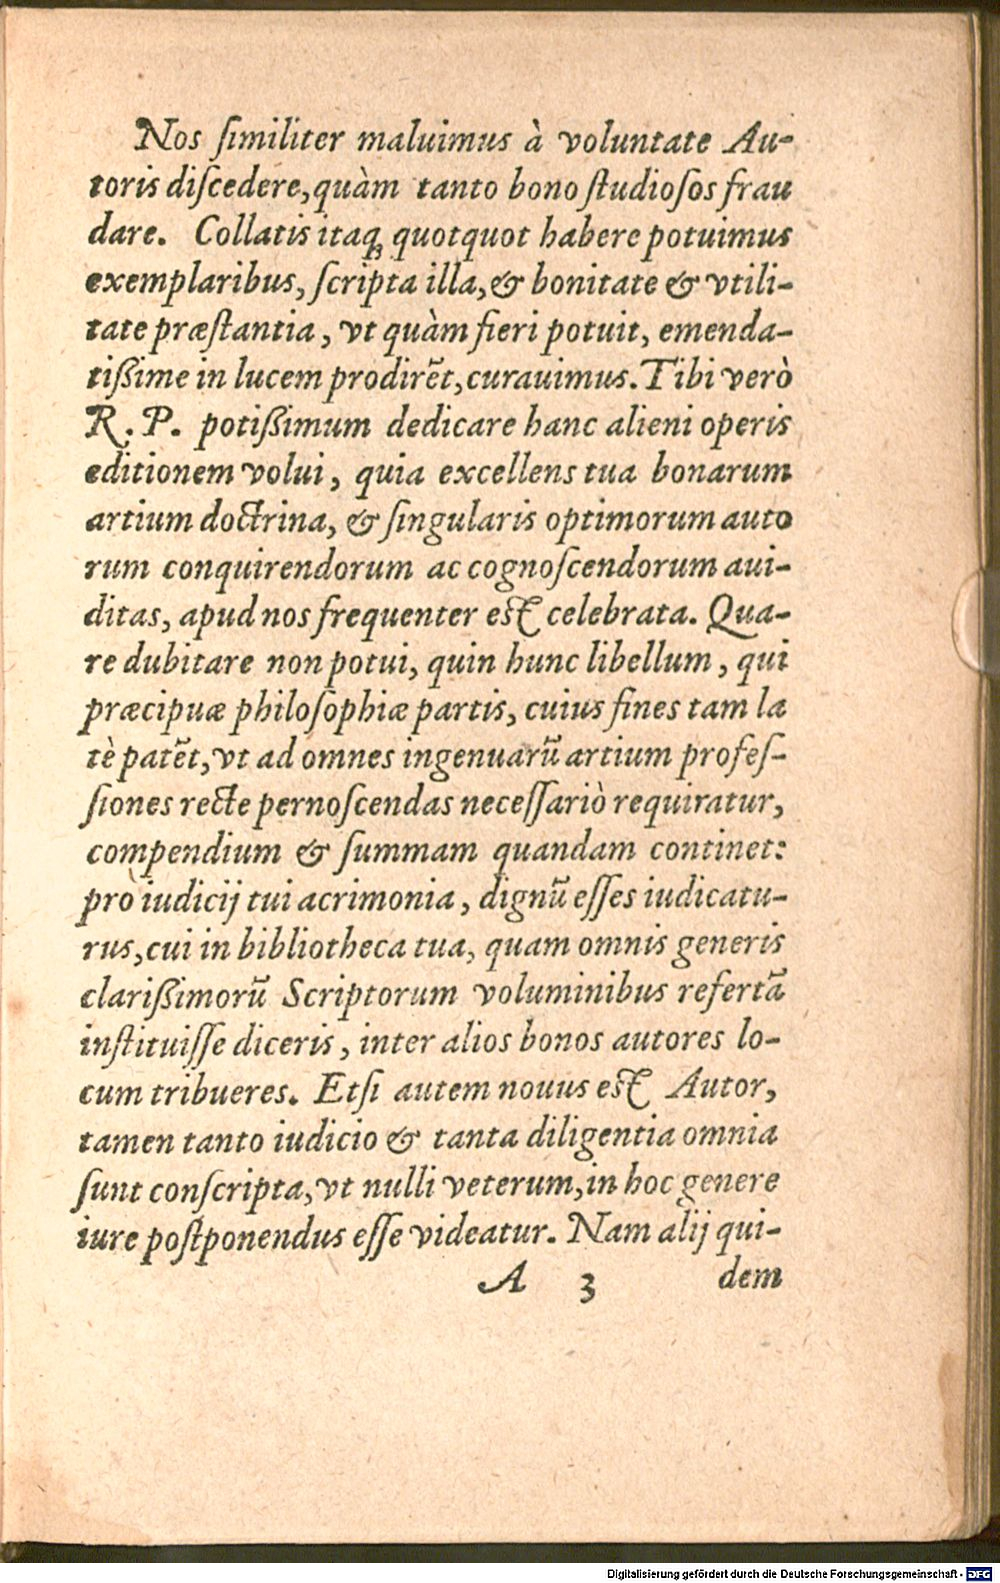 Nos ſimiliter maluimus à voluntate Au-
toris diſcedere, quàm tanto bono ſtudioſos frau
dare. Collatis itaq́; quotquot habere potuimus
exemplaribus, ſcripta illa, & bonitate & vtili-
tate præſtantia, vt quàm fieri potuit, emenda-
tiſſime in lucem prodirēt, curauimus. Tibi verò
R. P. potiſſimum dedicare hanc alieni operis
editionem volui, quia excellens tua bonarum
artium doctrina, & ſingularis optimorum auto
rum conquirendorum ac cognoſcendorum aui-
ditas, apud nos frequenter eſt celebrata. Qua-
re dubitare non potui, quin hunc libellum, qui
præcipuæ philoſophiæ partis, cuius fines tam la
tè patēt, vt ad omnes ingenuarū artium profeſ-
ſiones recte pernoſcendas neceſſariò requiratur,
compendium & ſummam quandam continet:
pro iudicij tui acrimonia, dignū eſſes iudicatu-
rus, cui in bibliotheca tua, quam omnis generis
clariſſimorū Scriptorum voluminibus refertā
inſtituiſſe diceris, inter alios bonos autores lo-
cum tribueres. Etſi autem nouus eſt Autor,
tamen tanto iudicio & tanta diligentia omnia
ſunt conſcripta, vt nulli veterum, in hoc genere
iure poſtponendus eſſe videatur. Nam alij qui-
A 3 dem
Digitalisierung gefördert durch die Deutsche Forschungsgemeinschaft - DFG